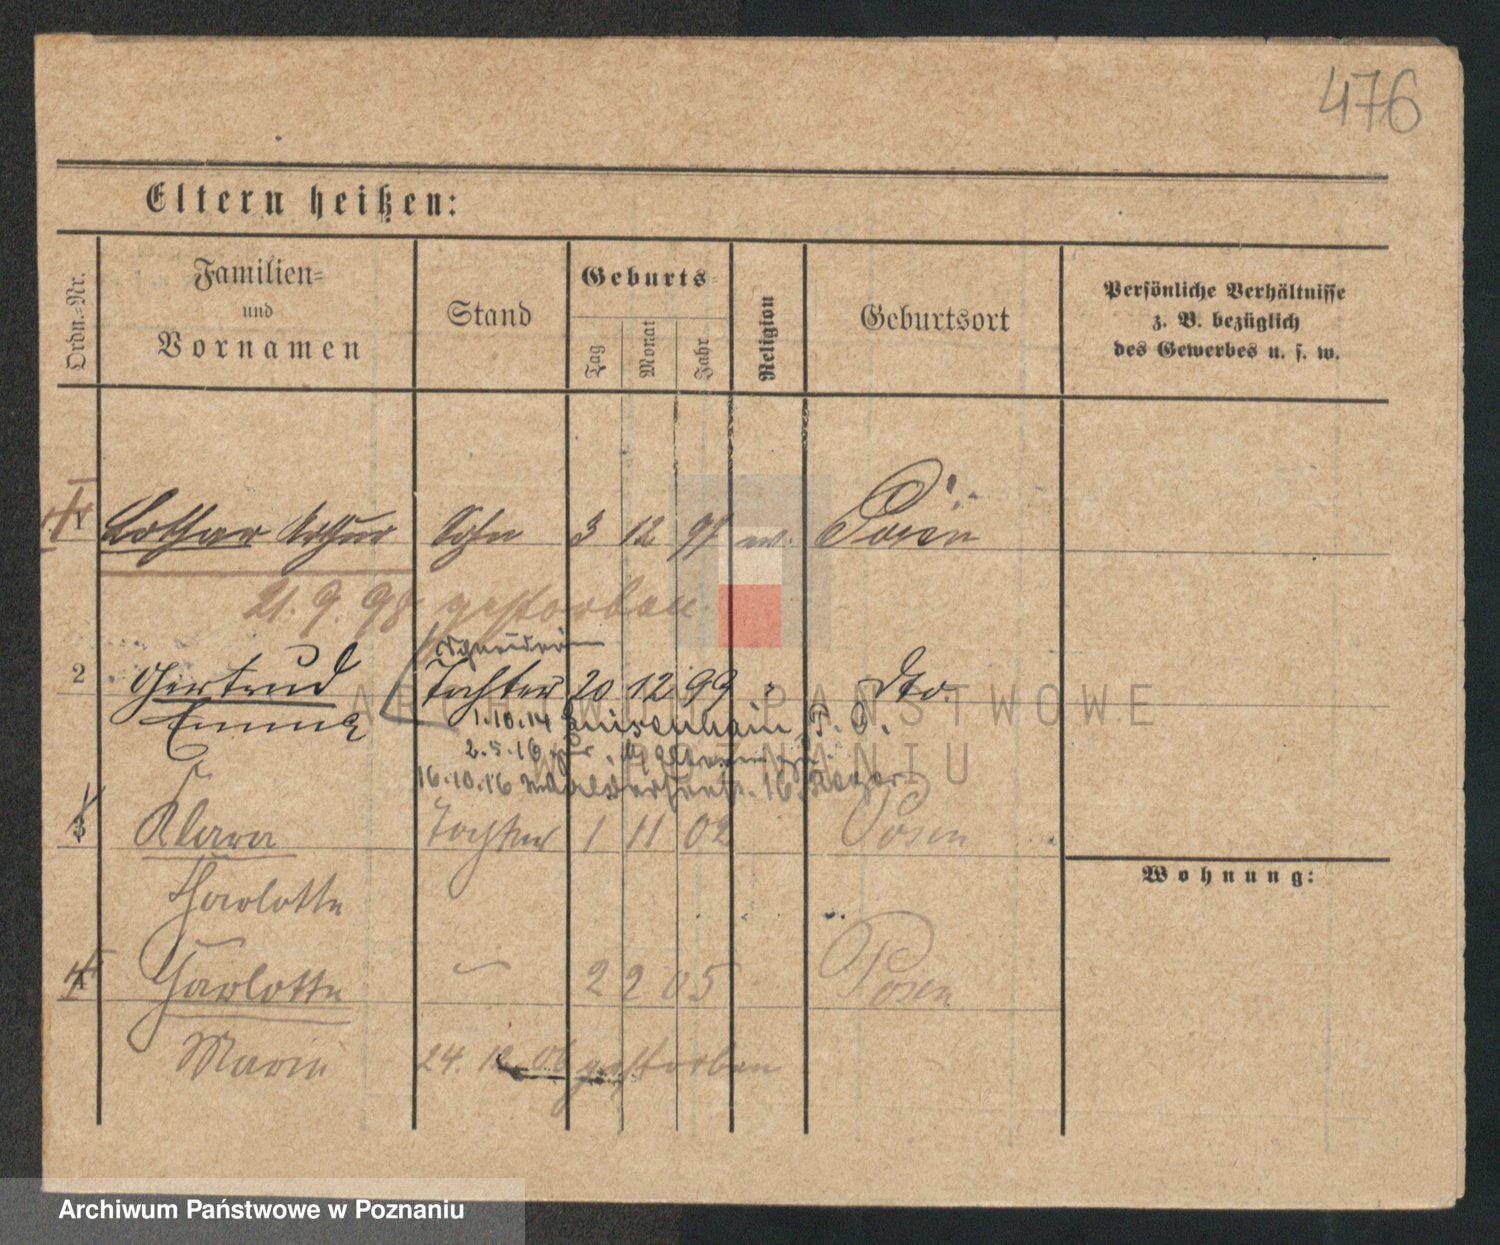 476
Eltern heißen:
Ordn.-Nr. Familien- und Vornamen Stand Geburts- Tag Monat Jahr Religion Geburtsort Persönliche Verhältnisse z. B. bezüglich des Gewerbes u. s. w.
1 Lothar Arthur Sohn 3 12 97 ev. Posen
21. 9. 98 gestorben
Schneiderin
2 Gertrud Tochter 20 12 99 " dto.
Emma 1.10.14 Luisenhain P. O.
2.5.16
16.10.16 16.
3 Klara Tochter 1 11 02 Posen
Charlotte
Wohnung:
4 Charlotte 2 2 05 Posen
Marie 24. 12. 06 gestorben
ARCHIWUM PAŃSTWOWE
W POZNANIU
Archiwum Państwowe w Poznaniu